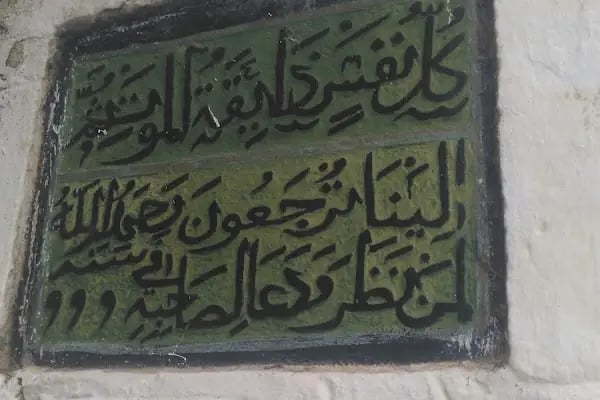 كُلُّ نَفْسٍ ذايِقَةُ الموت ثم
اليَنَا تُرجَعُونَ يرحم الله
لمَن نَظَرَ وَدَعَا لصَاحبِهِ في سنة